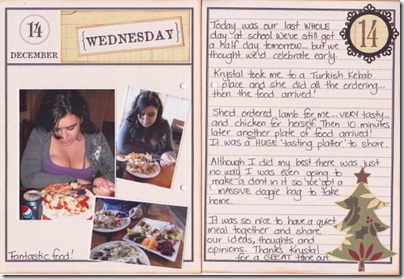 14
DECEMBER
WEDNESDAY
Fantastic food!
14
Today was our last WHOLE
day at school. We've still got
a half day tomorrow... but we
thought we'd celebrate early.
Krystal took me to a Turkish Kebab
place and she did all the ordering...
then the food arrived!
She'd ordered lamb for me... VERY tasty...
and chicken for herself. Then 10 minutes
later another plate of food arrived!
It was a HUGE 'tasting platter' to share.
Although I did my best there was just
no way I was even going to
make a dent in it so we got a
MASSIVE doggie bag to take
home.
It was so nice to have a quiet
meal together and share
our ideas, thoughts and
opinions. Thanks Krystal
for a GREAT time out.